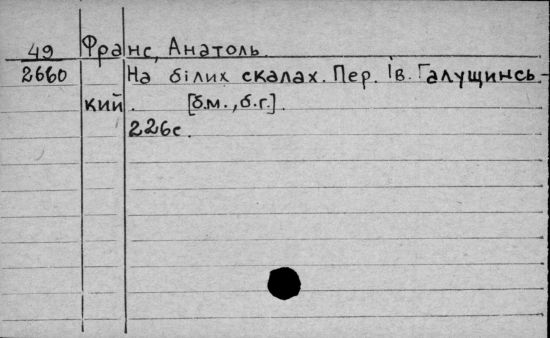 49 Франс, Анатоль.
2660 На білих скалах. Пер. Ів. Галущинсь-
кий. [б.м., б.г.].
226с.